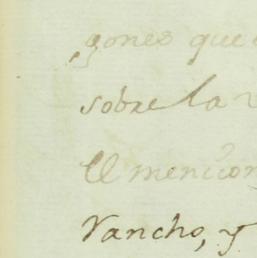 gones que
sobre la
El mencion
Rancho, y